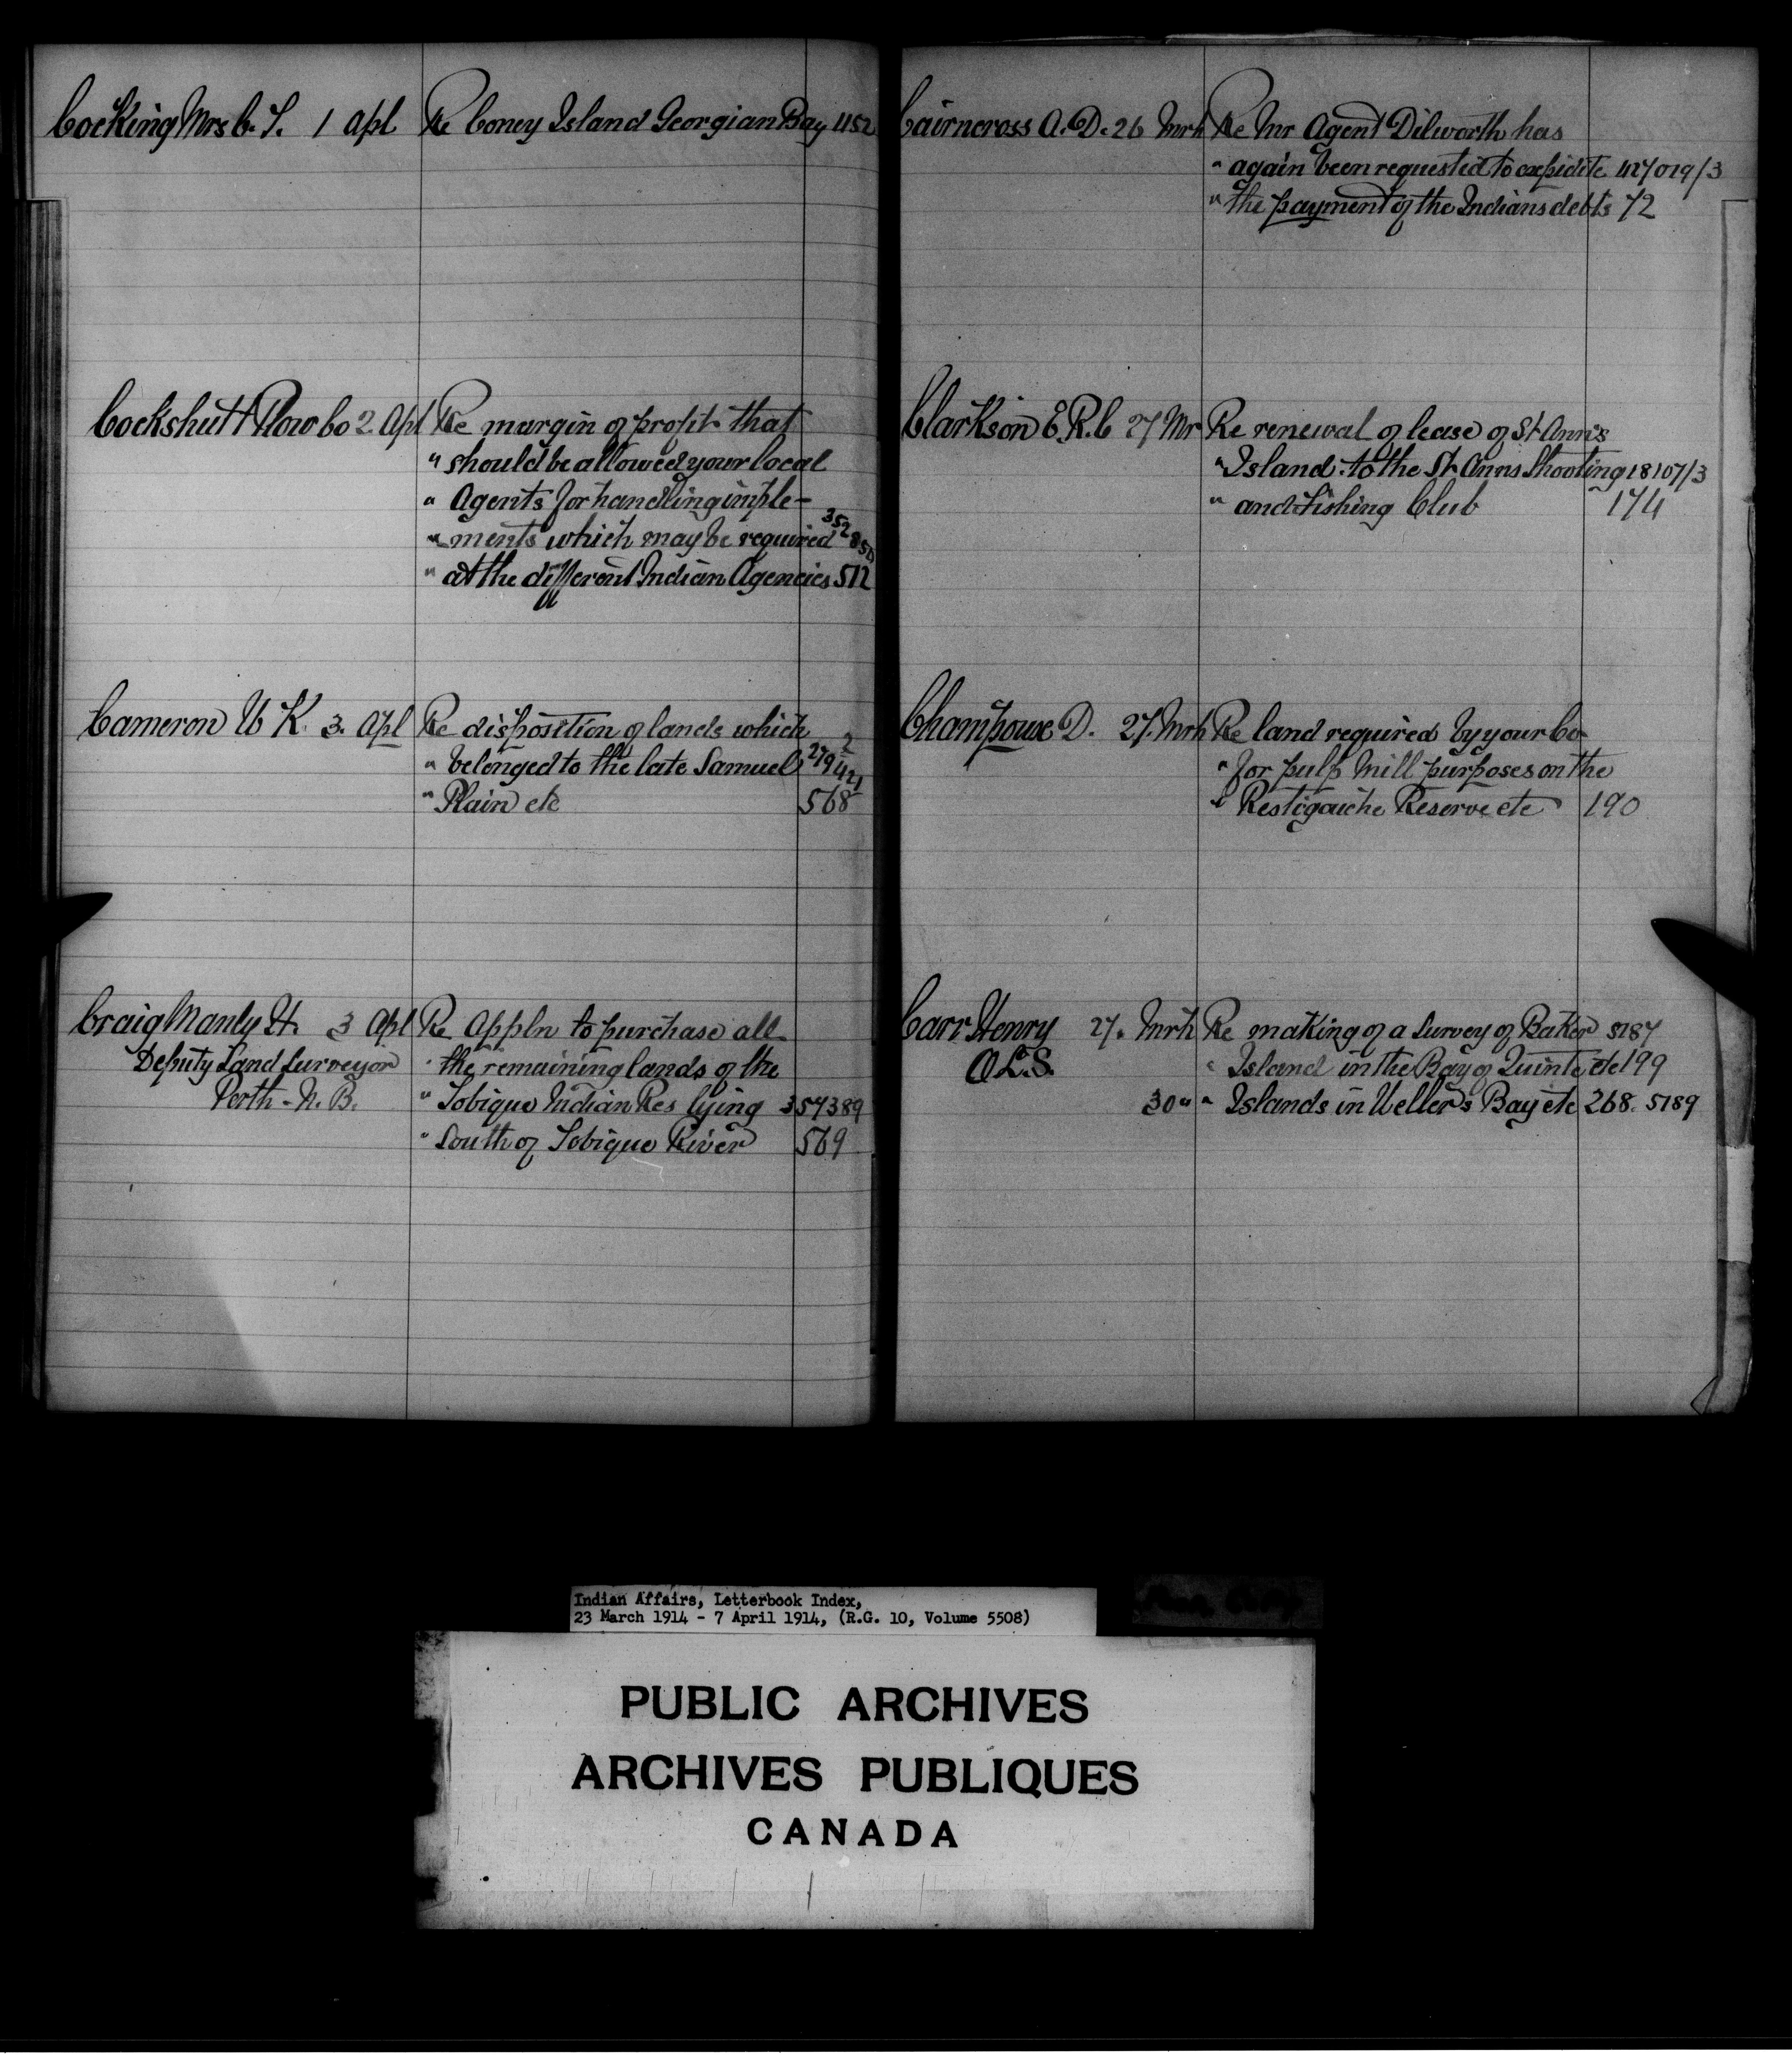 Cocking Mrs C. T. 1 Apl Re Coney Island Georgian Bay 452
Cockshutt Plow Co 2. Apl Re margin of profit that
" should be allowed your local
" Agents for handling imple-
" ments which may be required 352850
" at the different Indian Agencies 512
Cameron W K. 3. Apl Re disposition of lands which
" belonged to the late Samuel 279421 2
" Plain etc 568
Craig Manly H. 3 Apl Re Appln to purchase all
Deputy Land Surveyor " the remaining lands of the
Perth - N. B. " Tobique Indian Res lying 354389
" South of Tobique River 569
Cairncross A. D. 26 Mrh Re Mr Agent Dilworth has
" again been requested to expidite 427019/3
" the payment of the Indians debts 72
Clarkson E. R. C 27 Mr Re renewal of lease of St Ann's
" Island to the St Anns Shooting 18107/3
" and Fishing Club 174
Champoux D. 27. Mrh Re land required by your Co
" for pulp Mill purposes on the
" Restigouche Reserve etc 190
Carr Henry 27. Mrh Re making of a Survey of Baker 5187
O.L.S. " Island in the Bay of Quinte etc 199
30 " " Islands in Weller's Bay etc 268. 5189
Indian Affairs, Letterbook Index,
23 March 1914 - 7 April 1914, (R.G. 10, Volume 5508)
PUBLIC ARCHIVES
ARCHIVES PUBLIQUES
CANADA